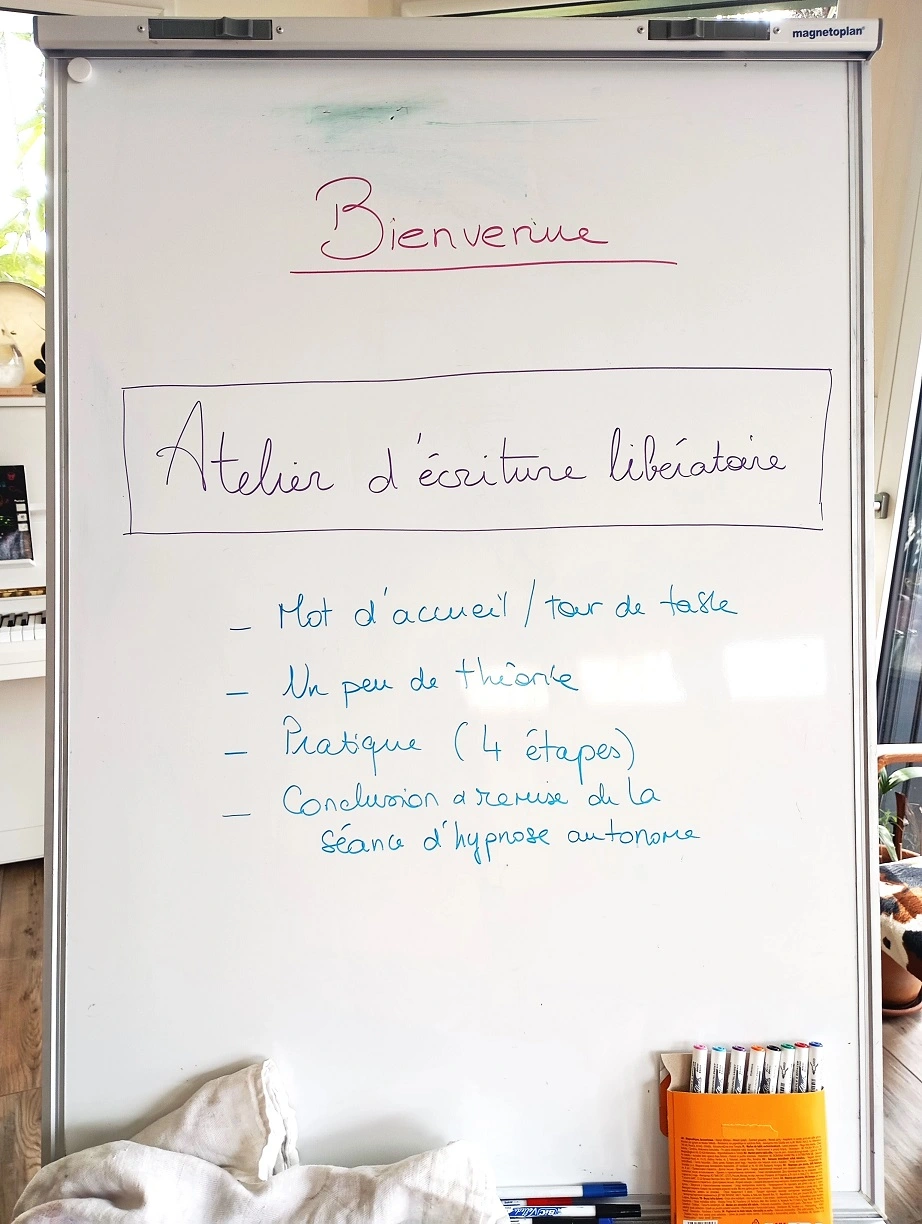 magnetoplan®
Bienvenue
Atelier d'écriture libératoire
- Mot d'accueil / tour de table
- Un peu de théorie
- Pratique (4 étapes)
- Conclusion & remise de la
séance d'hypnose autonome
BIC Velleda